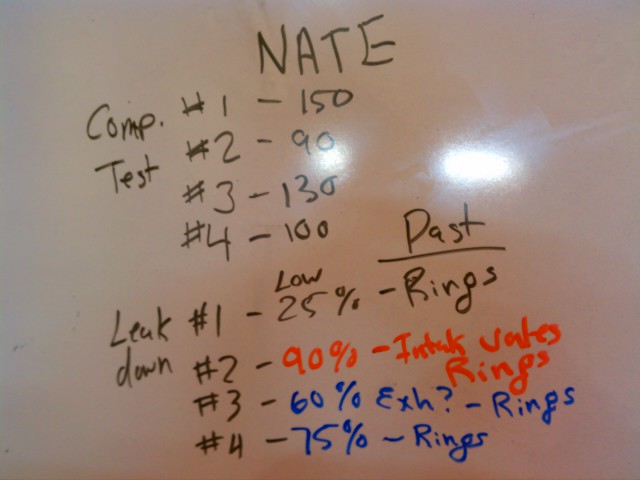 NATE
Comp. Test
#1 - 150
#2 - 90
#3 - 130
#4 - 100
Past
Leak down
#1 - Low 25% - Rings
#2 - 90% - Intak vales Rings
#3 - 60% Exh? - Rings
#4 - 75% - Rings